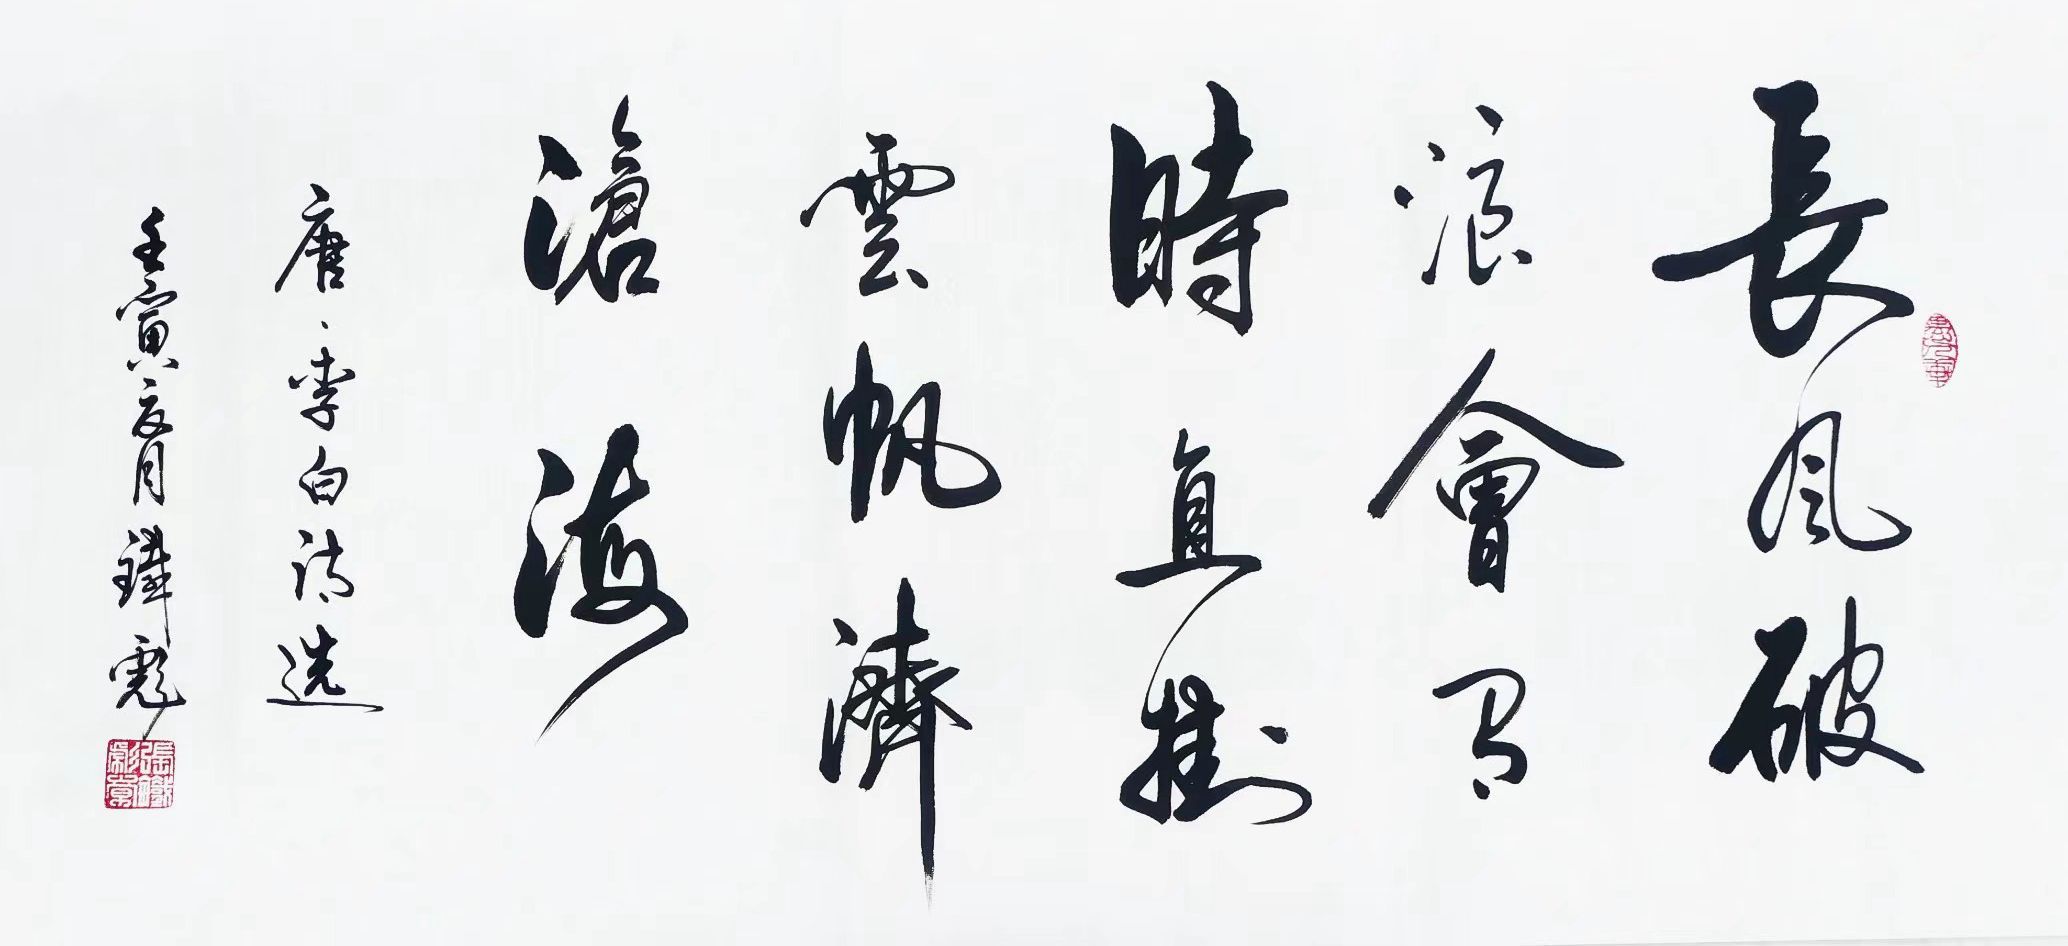 長風破
浪會有
時直掛
雲帆濟
滄海
唐、李白詩選
壬寅之月